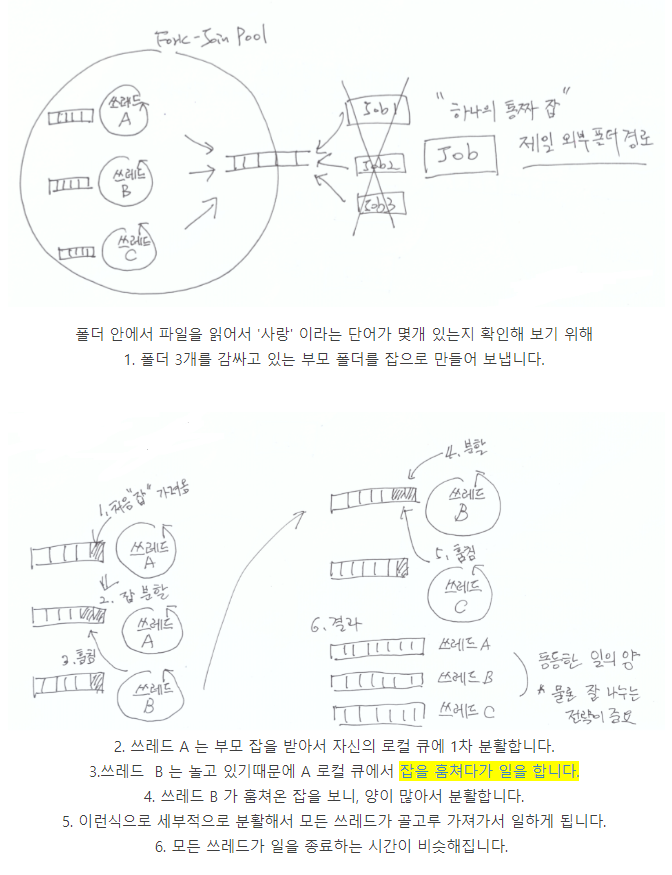 Fork-Join Pool
쓰레드 A
쓰레드 B
쓰레드 C
Job1
Job2
Job3
"하나의 통짜 잡"
Job
제일 외부 폴더 경로
폴더 안에서 파일을 읽어서 '사랑' 이라는 단어가 몇개 있는지 확인해 보기 위해
1. 폴더 3개를 감싸고 있는 부모 폴더를 잡으로 만들어 보냅니다.
1. 처음 "잡" 가져옴
쓰레드 A
2. 잡 분할
쓰레드 A
3. 훔침
쓰레드 B
4. 분할
쓰레드 B
5. 훔침
쓰레드 C
6. 결과
쓰레드 A
쓰레드 B
쓰레드 C
동등한 일의 양
* 물론 잘 나누는
전략이 중요
2. 쓰레드 A 는 부모 잡을 받아서 자신의 로컬 큐에 1차 분활합니다.
3.쓰레드 B 는 놀고 있기때문에 A 로컬 큐에서 잡을 훔쳐다가 일을 합니다.
4. 쓰레드 B 가 훔쳐온 잡을 보니, 양이 많아서 분활합니다.
5. 이런식으로 세부적으로 분활해서 모든 쓰레드가 골고루 가져가서 일하게 됩니다.
6. 모든 쓰레드가 일을 종료하는 시간이 비슷해집니다.